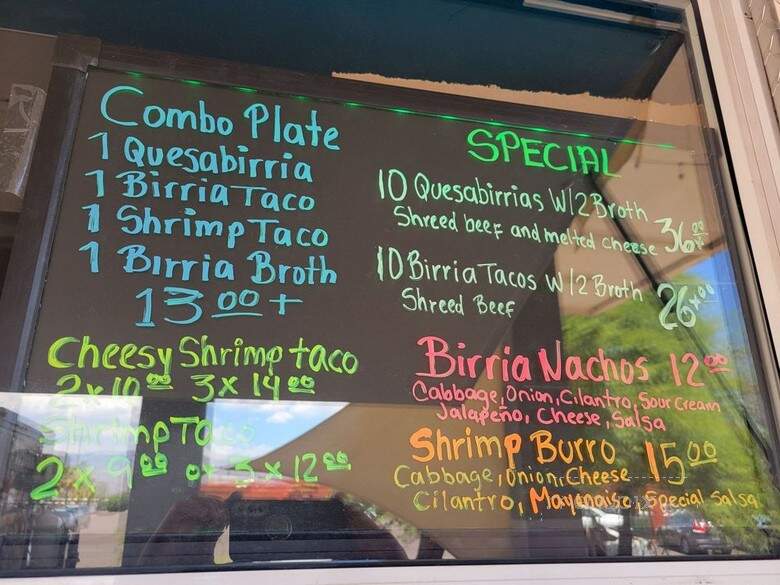 Combo Plate
1 Quesabirria
1 Birria Taco
1 Shrimp Taco
1 Birria Broth
13.00 +
Cheesy Shrimp taco
2 x 10.00 3 x 14.00
Shrimp Taco
2 x 9.00 or 3 x 12.00
SPECIAL
10 Quesabirrias W/2 Broth
Shreed beef and melted cheese 36.00
10 Birria Tacos W/2 Broth
Shreed Beef 26.00
Birria Nachos 12.00
Cabbage, Onion, Cilantro, Sour Cream
Jalapeño, Cheese, Salsa
Shrimp Burro 15.00
Cabbage, Onion, Cheese
Cilantro, Mayonaise, Special Salsa